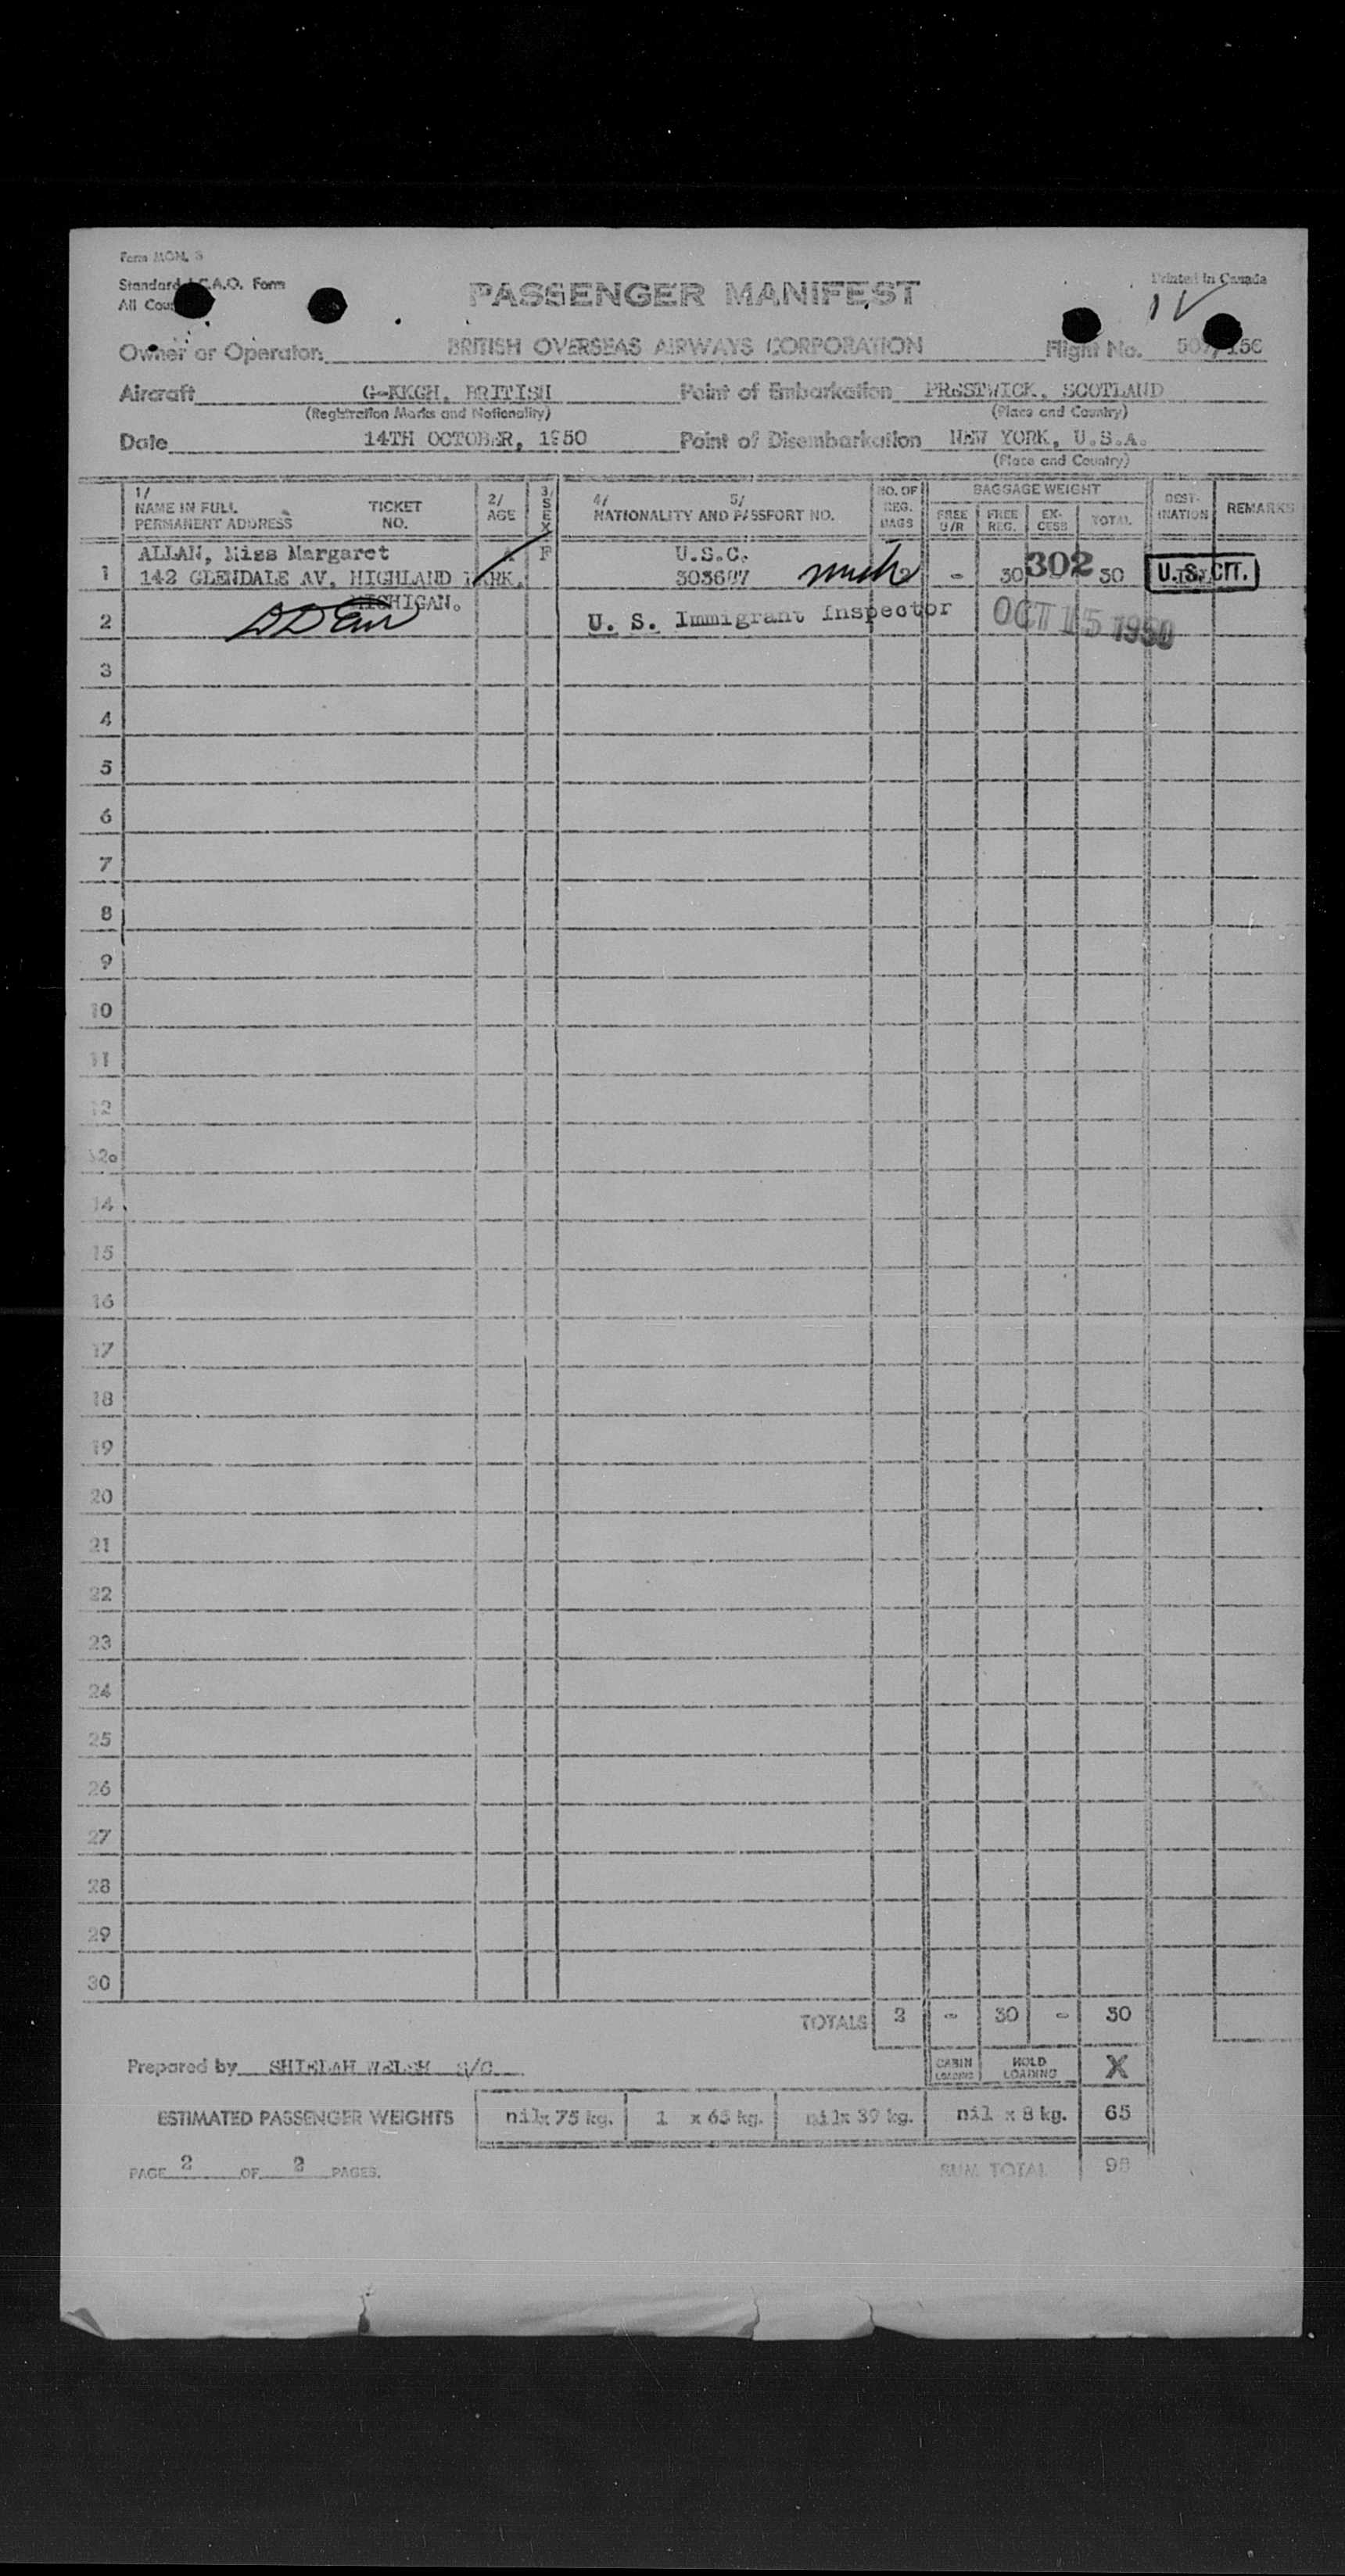 Form MON. 3
Standard I.C.A.O. Form
All
PASSENGER MANIFEST
Printed in Canada
Owner or Operator BRITISH OVERSEAS AIRWAYS CORPORATION Flight No.
Aircraft G-KKGH, BRITISH Point of Embarkation PRESTWICK, SCOTLAND
(Registration Marks and Nationality) (Place and Country)
Date 14TH OCTOBER, 1950 Point of Disembarkation NEW YORK, U.S.A.
(Place and Country)
1/ NAME IN FULL PERMANENT ADDRESS TICKET NO. 2/ AGE 3/ SEX 4/ 5/ NATIONALITY AND PASSPORT NO. NO. OF REG. BAGS BAGGAGE WEIGHT FREE U/R FREE REG. EX-CESS TOTAL DEST-INATION REMARKS
ALLAN, Miss Margaret F U.S.C.
1 142 GLENDALE AV. HIGHLAND PARK, 2 - 30 302 30 U.S. CIT.
MICHIGAN.
2 U. S. Immigrant Inspector OCT 15 1950
3
4
5
6
7
8
9
10
11
12
12a
14
15
16
17
18
19
20
21
22
23
24
25
26
27
28
29
30
TOTALS 2 - 30 - 30
Prepared by SHIELAH WELSH S/O CABIN LOADING HOLD LOADING X
ESTIMATED PASSENGER WEIGHTS nil x 75 kg. 1 x 65 kg. nil x 39 kg. nil x 8 kg. 65
PAGE 2 OF 2 PAGES. SUM TOTAL